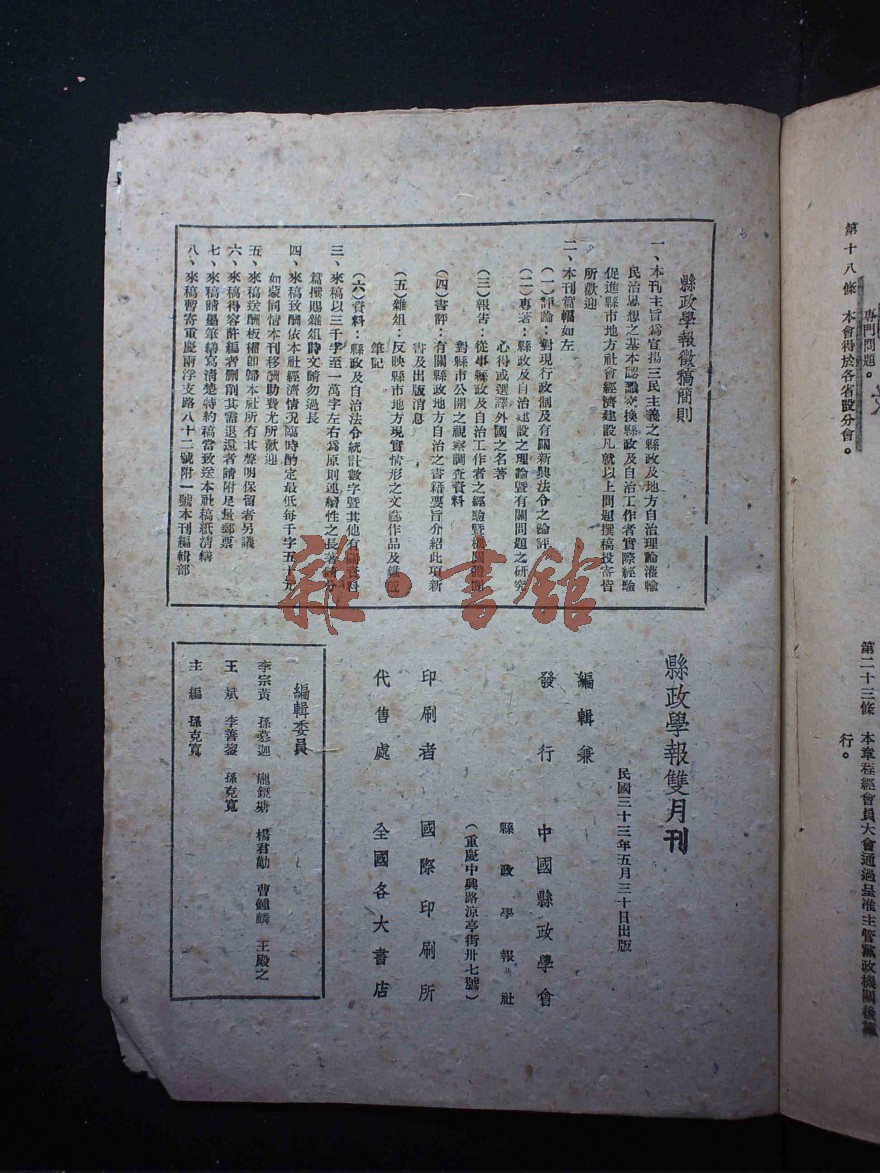 第十八條　本會得於各省設分會。
專門問題。
第二十三條　本章程經會員大會通過呈准主管黨政機關後施
行。
縣政學報徵稿簡則
一、本刊主旨為宣揚三民主義之縣政及地方自治理論灌輸
民治思想之基本認識交換縣政及自治工作者實際經驗
促進縣市地方社會經濟建設凡就以上問題撰稿投寄皆
所歡迎
二、本刊篇幅如左
（一）評論：對現行政制及有關新興法令之論評
（二）專著：縣政及自治建設之理論暨有關問題之研究
心得或選譯外國之名著
（三）報告：從事縣政及自治工作者之經驗暨機關團體
對縣市公開之視察調查資料
（四）書評：有關縣政地方自治之書籍要旨介紹此項新
書及出版消息
（五）雜組：反映縣市地方現實情形之文藝作品及雜感
筆記
（六）資料：縣政及自治法令統計數字暨其他有關資料
三、來稿以三千字至一萬字左右為原則連續性之長著請分
篇撰賜雜組詩文請勿過長
四、來稿致酬依本社經濟情況臨時酌定最低每千字五十元
如蒙同情本刊移酬助費尤所歡迎
五、來稿送酬板權即歸本社所有其聲明保留者另議
六、來稿得容許編者刪削其需退還者請附足量郵票
七、來稿請墨筆繕寫清楚特約稿當致送本社稿紙清繕
八、來稿暫寄重慶兩浮支路八十二號附一號本刊編輯部
縣政學報雙月刊
民國三十三年五月三十日出版
編輯兼
發行　中國縣政學會
縣政學報社
（重慶中興路涼亭街卅七號）
印刷者　國際印刷所
代售處　全國各大書店
編輯委員
李宗黃　孫慕迦　龐鏡塘　楊君勱　曹鍾麟　王殿之
王斌　李善鋆　孫克寬
主編　孫克寬
雜·書館